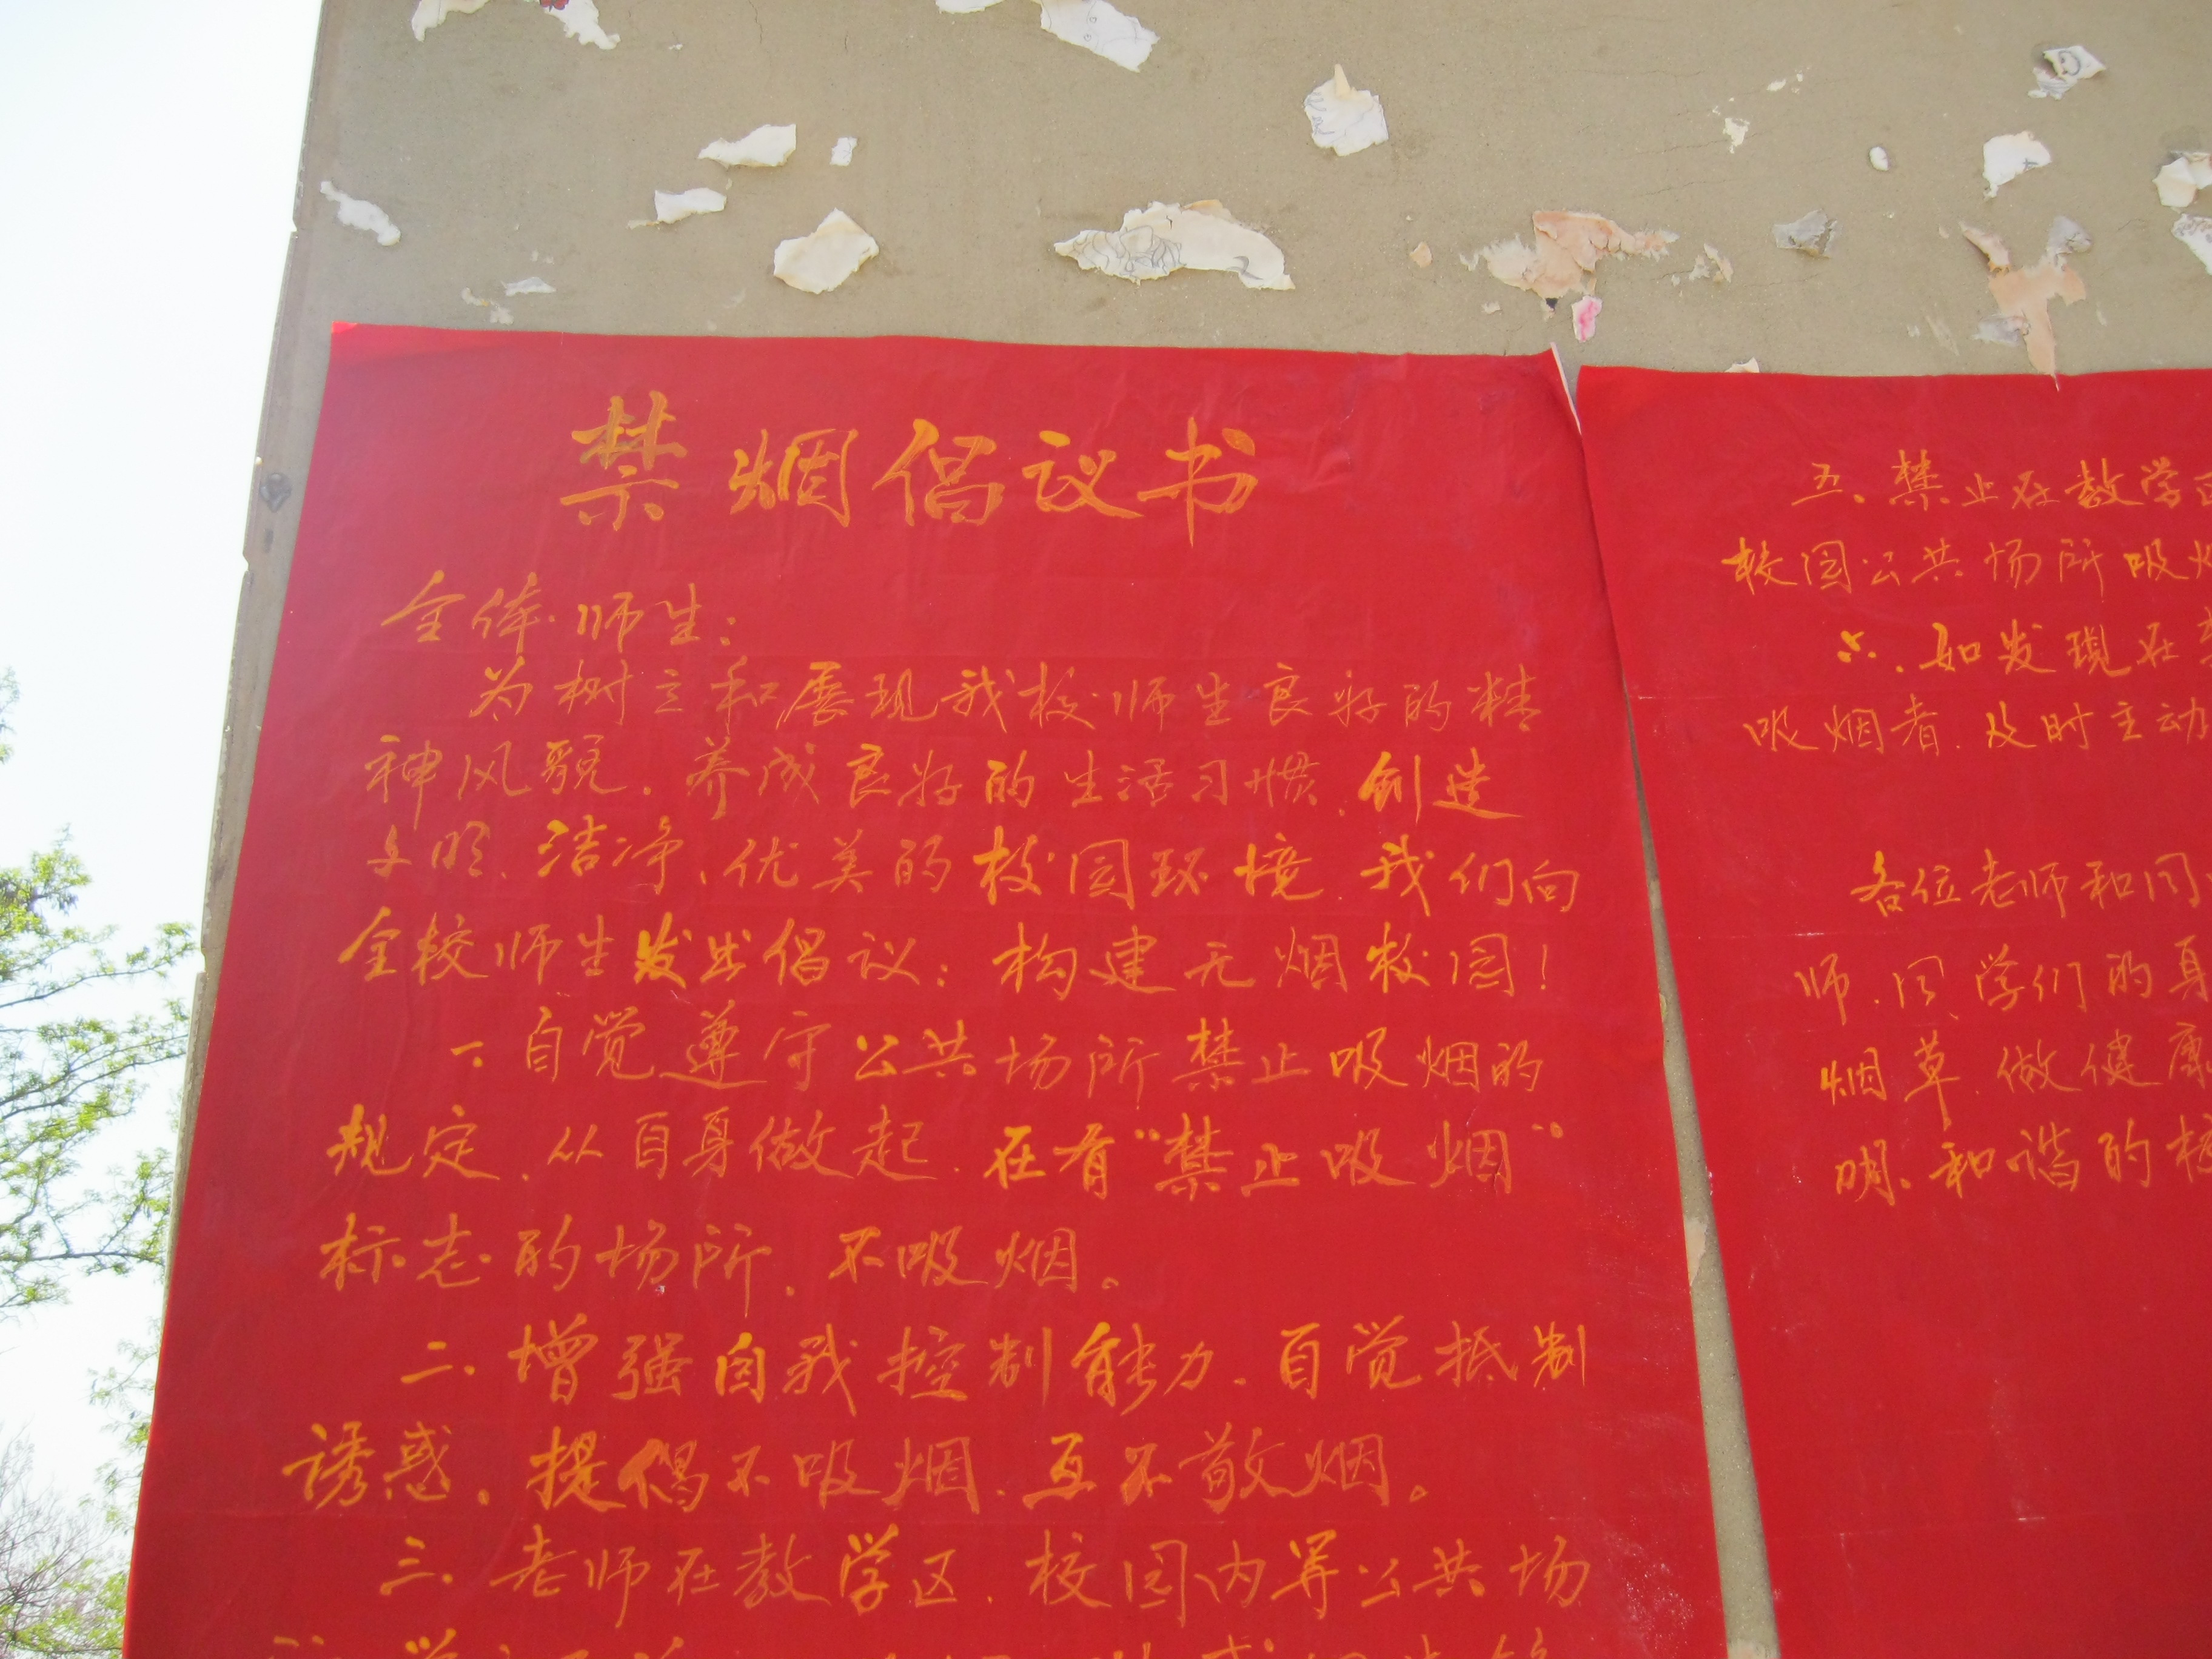 禁烟倡议书
全体师生:
为树立和展现我校师生良好的精
神风貌,养成良好的生活习惯,创造
文明、洁净、优美的校园环境,我们向
全校师生发出倡议:构建无烟校园!
一、自觉遵守公共场所禁止吸烟的
规定,从自身做起,在有“禁止吸烟”
标志的场所,不吸烟。
二、增强自我控制能力,自觉抵制
诱惑,提倡不吸烟、互不敬烟。
三、老师在教学区、校园内等公共场
五、禁止在教学
校园公共场所吸烟
六、如发现在
吸烟者,及时主动
各位老师和同
师、同学们的身
烟草,做健康
明、和谐的校